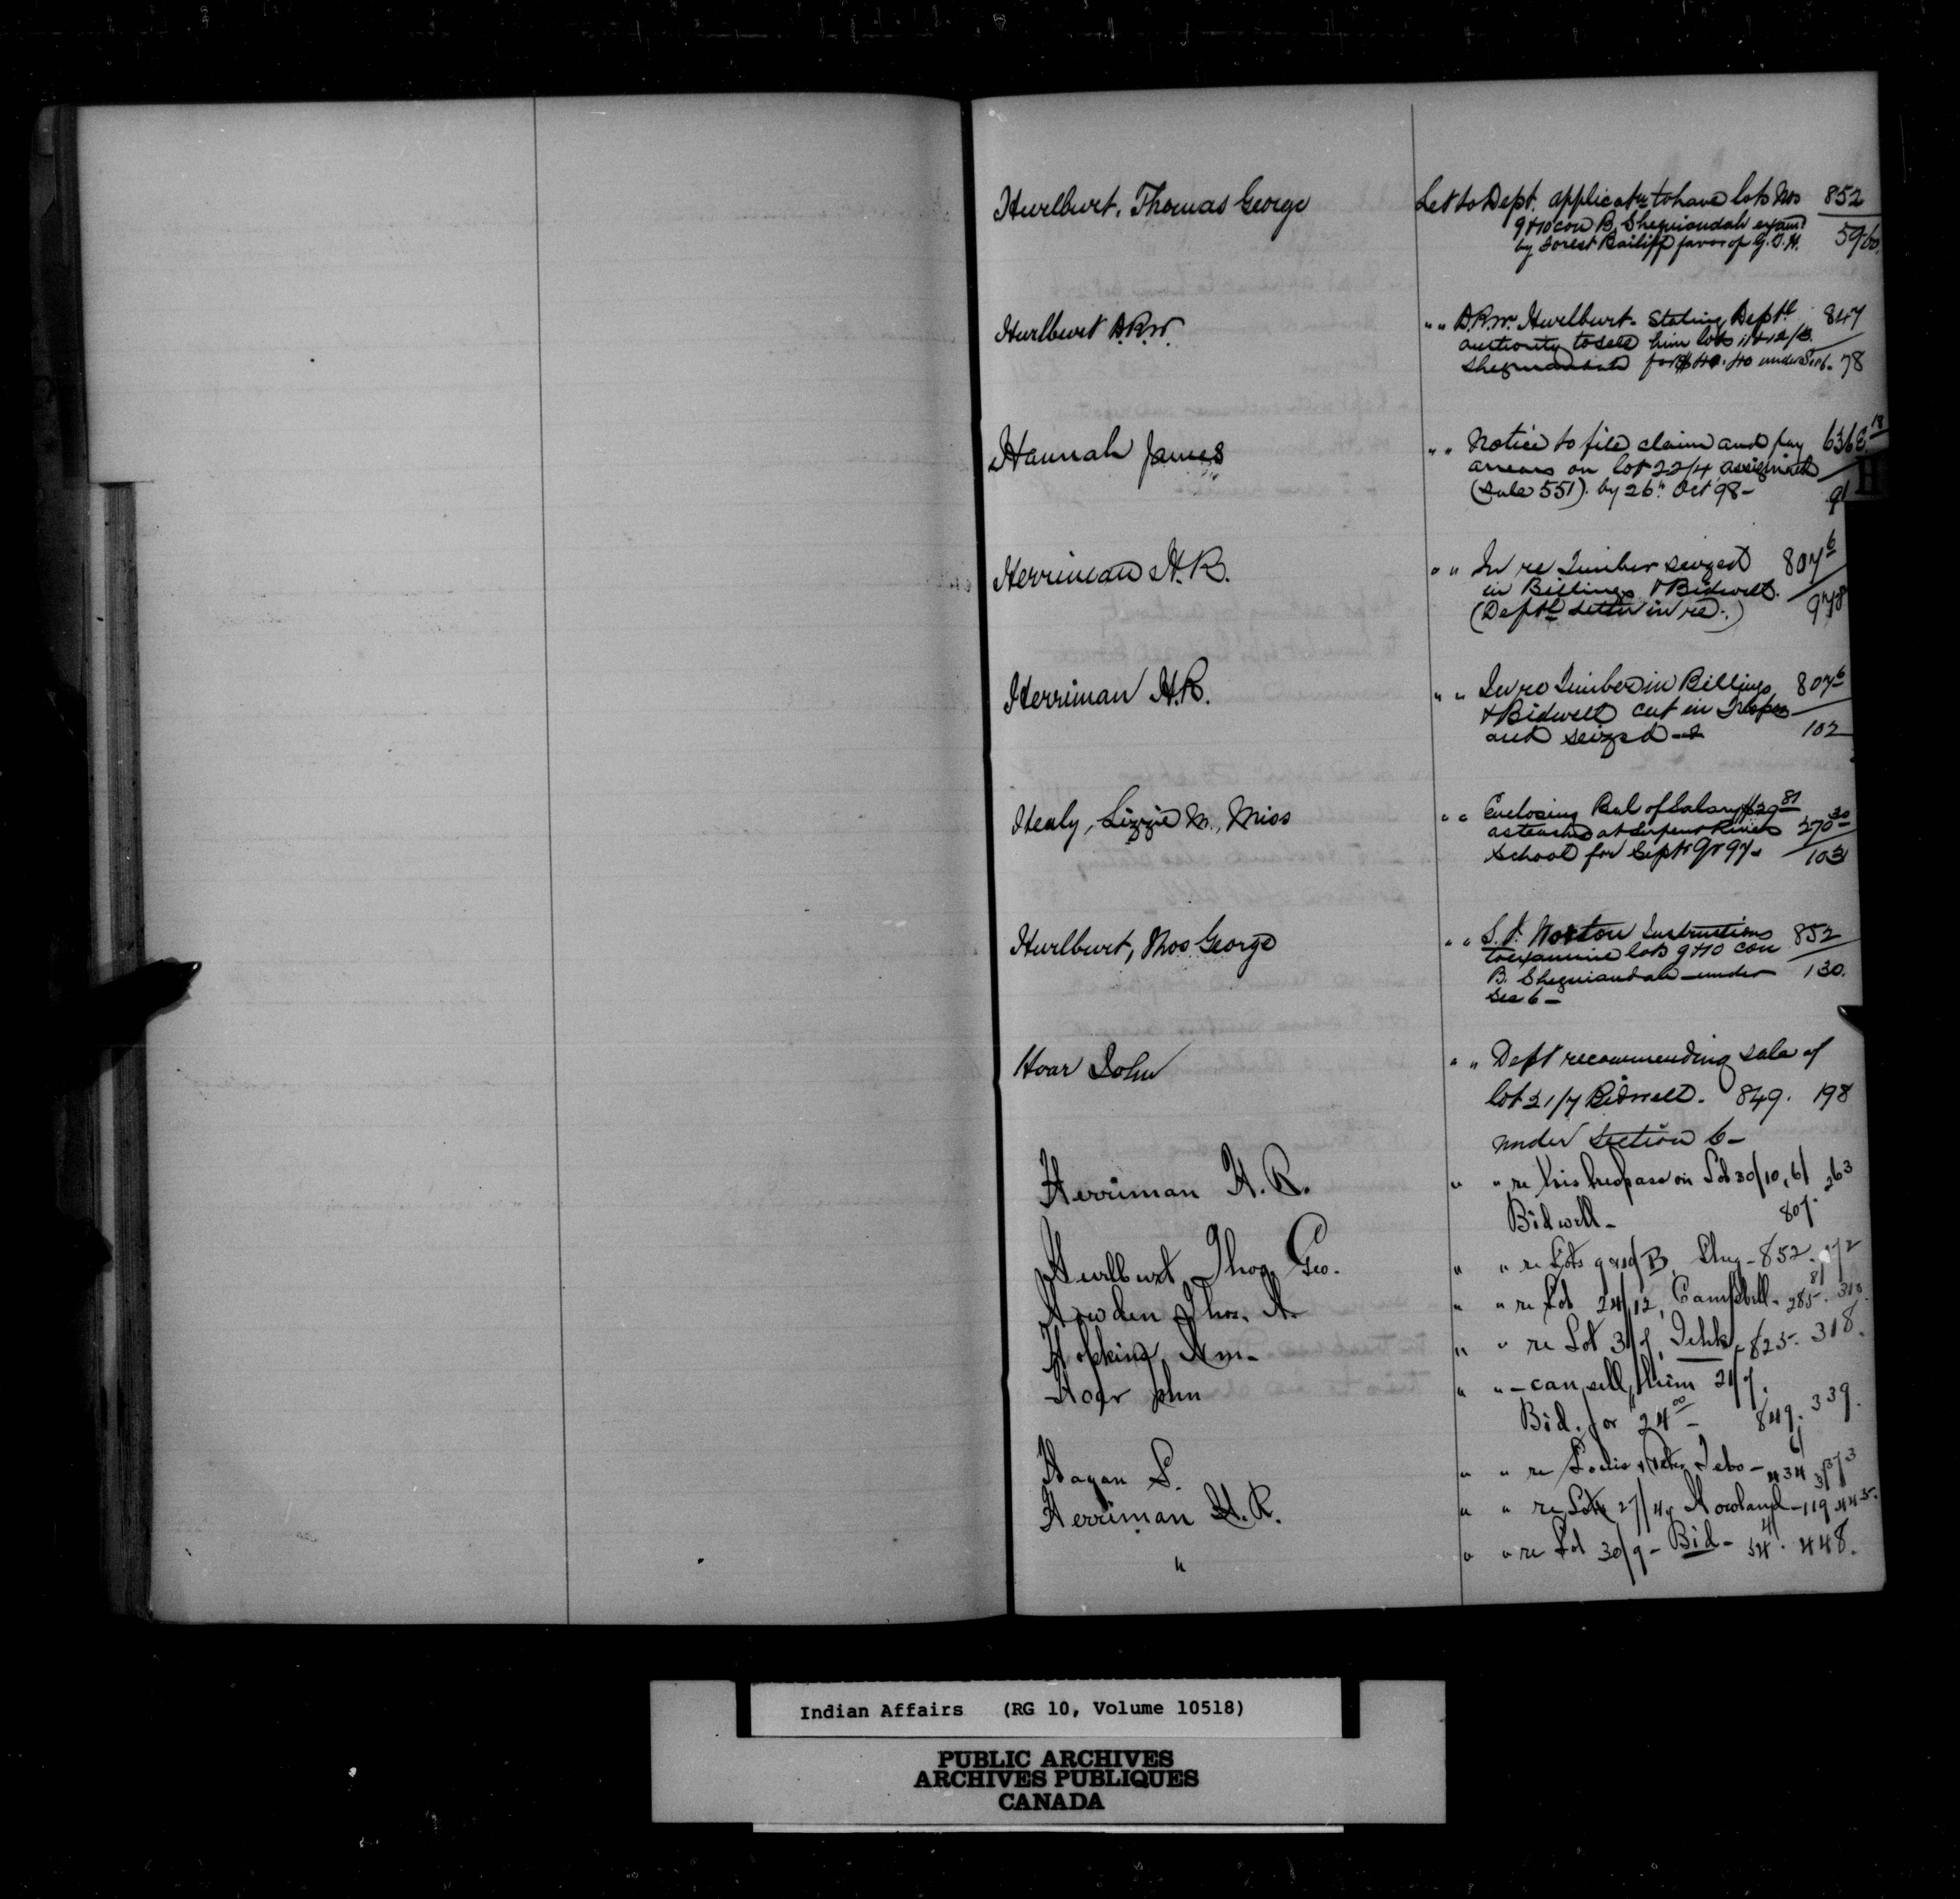 Hurlburt, Thomas George Let to Dept. applicatn to have lots Nos 852
9 & 10 con B, Sheguiandah exam
by Forest Bailiff favor of G.T.H. 5960
Hurlburt D.R.W. " " D.R.W. Hurlburt - Stating Deptl 847
authority to sell him lots 11 & 12/B.
Sheguiandah for $40.40 under Sec 6. 78
Hannah James " " Notice to file claim and pay 6368 18
arrears on lot 22/4 Assiginack
(Sale 551). by 26" Oct 98 - 91
H
Herriman H.R. " " In re Timber seized 807 6
in Billings & Bidwell.
(Deptl letter in re.) 978
Herriman H.R. " " In re Timber in Billings 807 6
& Bidwell cut in Trespass
and seized 102
Healy, Lizzie M., Miss " " Enclosing Bal of Salary $29 81
as teacher at Serpent River 270 30
School for Sept Qr 97 - 103
Hurlburt, Thos George " " S. J. Norton Instructions 852
to examine lots 9 & 10 con
B. Sheguiandah under 130.
Sec 6 -
Hoar John " " Dept recommending sale of
lot 21/7 Bidwell. 849. 198
under Section 6 -
Herriman H. R. " " re his trespass on Lot 30/10, 61 263
Bidwell - 807.
Hurlburt, Thos. Geo. " " re Lots 9 and B, Sheg - 852.
Howden Thos. A. " " re Lot 24/12, Campbell - 285. 81 318.
Hopkins, Wm - " " re Lot 3/7, Tehk - 825 - 318.
Hoar John " " - can sell him 21/7.
Bid. for 24 00 - 849. 339.
Hagan S. " " re Louis & Peter Tebo - 434 61 373
Herriman H. R. " " re Lot 27/4, Howland - 119. 445.
" " " re Lot 30/9 - Bid - 54. 41 448.
Indian Affairs (RG 10, Volume 10518)
PUBLIC ARCHIVES
ARCHIVES PUBLIQUES
CANADA